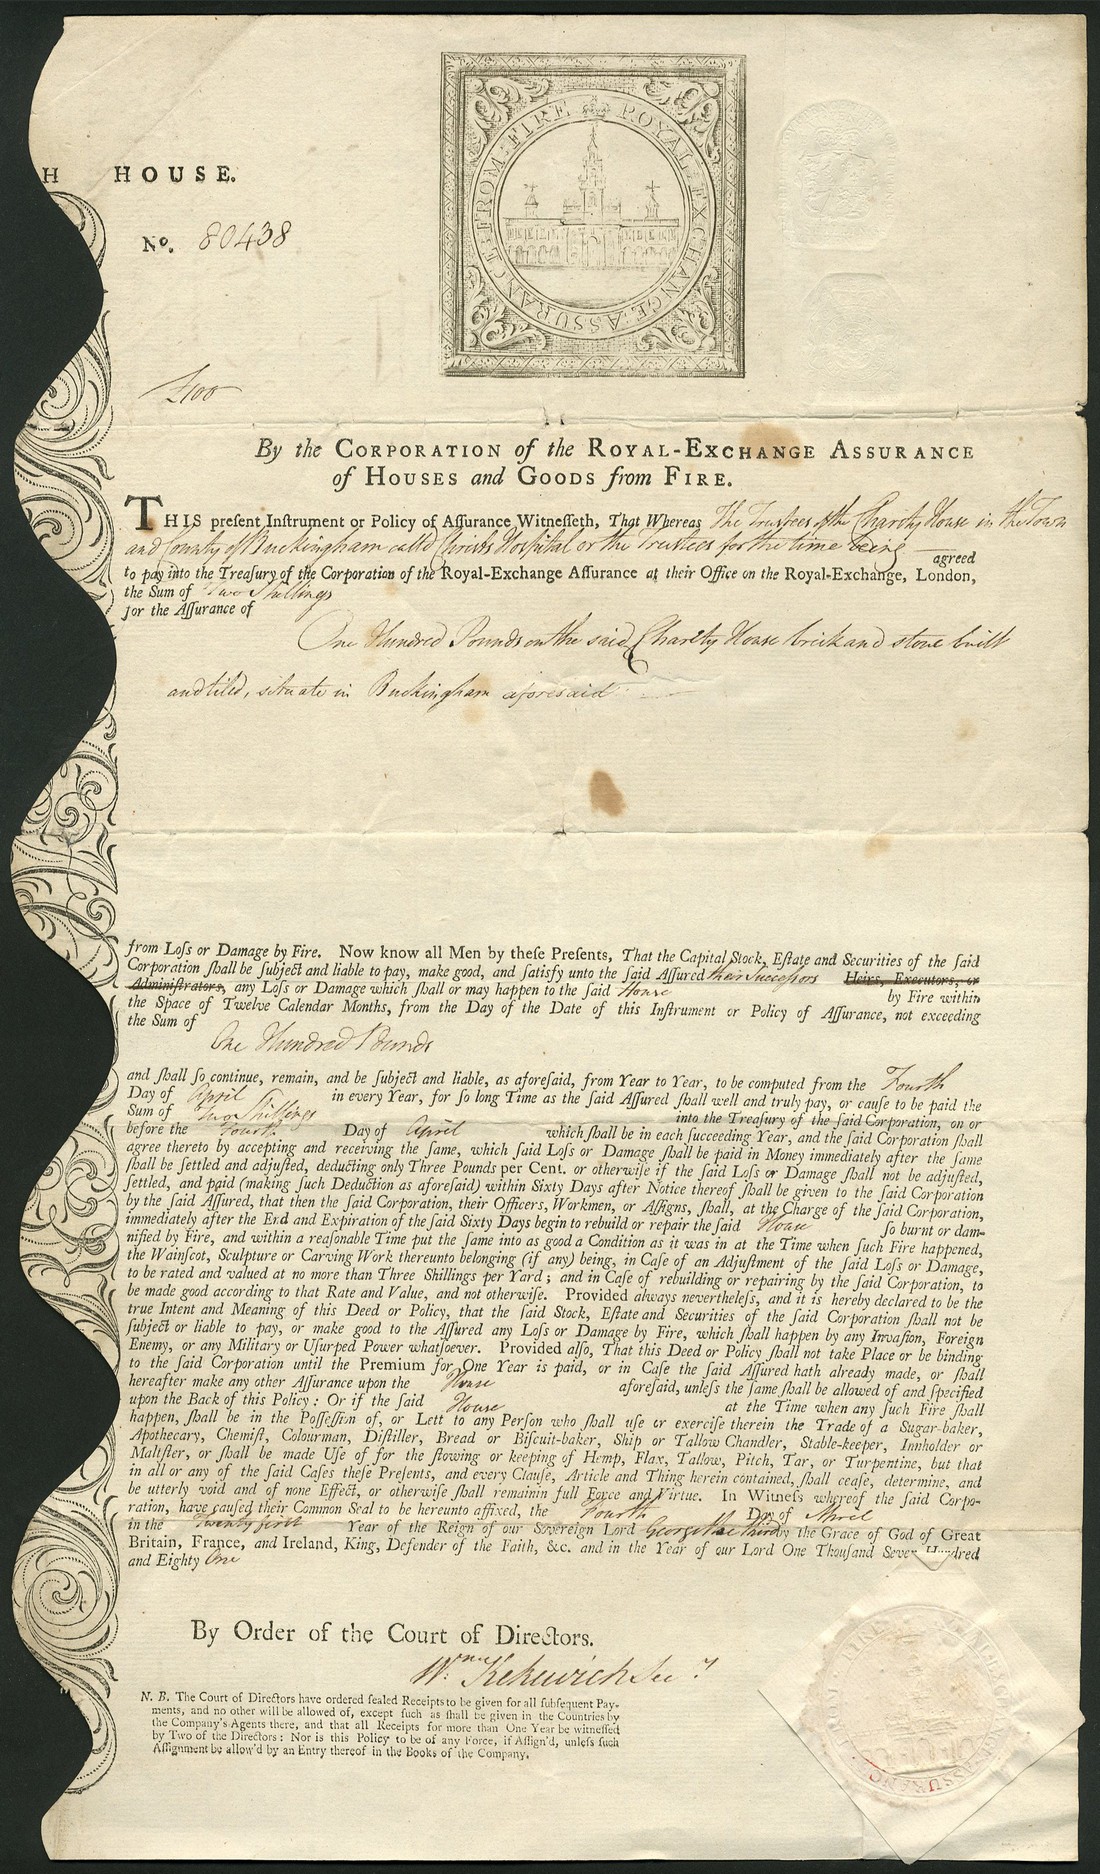 H HOUSE.
No. 80438
ROYAL·EXCHANGE·ASSURANCE·FROM·FIRE
£100
By the CORPORATION of the ROYAL-EXCHANGE ASSURANCE
of HOUSES and GOODS from FIRE.
THIS preſent Inſtrument or Policy of Aſſurance Witneſſeth, That Whereas The Trustees of the Charity House in the Town
and County of Buckingham called Christs Hospital or the Trustees for the time being agreed
to pay into the Treaſury of the Corporation of the Royal-Exchange Aſſurance at their Office on the Royal-Exchange, London,
the Sum of Two Shillings
for the Aſſurance of
One Hundred Pounds on the said Charity House brick and stone built
and tiled, situate in Buckingham aforesaid
from Loſs or Damage by Fire. Now know all Men by theſe Preſents, That the Capital Stock, Eſtate and Securities of the ſaid
Corporation ſhall be ſubject and liable to pay, make good, and ſatisfy unto the ſaid Aſſured their Successors Heirs, Executors, or
Adminiſtrators, any Loſs or Damage which ſhall or may happen to the ſaid House
by Fire within
the Space of Twelve Calendar Months, from the Day of the Date of this Inſtrument or Policy of Aſſurance, not exceeding
the Sum of
One Hundred Pounds
and ſhall ſo continue, remain, and be ſubject and liable, as aforeſaid, from Year to Year, to be computed from the Fourth
Day of April in every Year, for ſo long Time as the ſaid Aſſured ſhall well and truly pay, or cauſe to be paid the
Sum of Two Shillings into the Treaſury of the ſaid Corporation, on or
before the Fourth Day of April which ſhall be in each ſucceeding Year, and the ſaid Corporation ſhall
agree thereto by accepting and receiving the ſame, which ſaid Loſs or Damage ſhall be paid in Money immediately after the ſame
ſhall be ſettled and adjuſted, deducting only Three Pounds per Cent. or otherwiſe if the ſaid Loſs or Damage ſhall not be adjuſted,
ſettled, and paid (making ſuch Deduction as aforeſaid) within Sixty Days after Notice thereof ſhall be given to the ſaid Corporation
by the ſaid Aſſured, that then the ſaid Corporation, their Officers, Workmen, or Aſſigns, ſhall, at the Charge of the ſaid Corporation,
immediately after the End and Expiration of the ſaid Sixty Days begin to rebuild or repair the ſaid House ſo burnt or dam-
nified by Fire, and within a reaſonable Time put the ſame into as good a Condition as it was in at the Time when ſuch Fire happened,
the Wainſcot, Sculpture or Carving Work thereunto belonging (if any) being, in Caſe of an Adjuſtment of the ſaid Loſs or Damage,
to be rated and valued at no more than Three Shillings per Yard; and in Caſe of rebuilding or repairing by the ſaid Corporation, to
be made good according to that Rate and Value, and not otherwiſe. Provided always nevertheleſs, and it is hereby declared to be the
true Intent and Meaning of this Deed or Policy, that the ſaid Stock, Eſtate and Securities of the ſaid Corporation ſhall not be
ſubject or liable to pay, or make good to the Aſſured any Loſs or Damage by Fire, which ſhall happen by any Invaſion, Foreign
Enemy, or any Military or Uſurped Power whatſoever. Provided alſo, That this Deed or Policy ſhall not take Place or be binding
to the ſaid Corporation until the Premium for One Year is paid, or in Caſe the ſaid Aſſured hath already made, or ſhall
hereafter make any other Aſſurance upon the House aforeſaid, unleſs the ſame ſhall be allowed of and ſpecified
upon the Back of this Policy: Or if the ſaid House at the Time when any ſuch Fire ſhall
happen, ſhall be in the Poſſeſſion of, or Lett to any Perſon who ſhall uſe or exerciſe therein the Trade of a Sugar-baker,
Apothecary, Chemiſt, Colourman, Diſtiller, Bread or Biſcuit-baker, Ship or Tallow Chandler, Stable-keeper, Innholder or
Maltſter, or ſhall be made Uſe of for the ſtowing or keeping of Hemp, Flax, Tallow, Pitch, Tar, or Turpentine, but that
in all or any of the ſaid Caſes theſe Preſents, and every Clauſe, Article and Thing herein contained, ſhall ceaſe, determine, and
be utterly void and of none Effect, or otherwiſe ſhall remain in full Force and Virtue. In Witneſs whereof the ſaid Corpo-
ration, have cauſed their Common Seal to be hereunto affixed, the Fourth Day of April
in the Twenty first Year of the Reign of our Sovereign Lord George the third by the Grace of God of Great
Britain, France, and Ireland, King, Defender of the Faith, &c. and in the Year of our Lord One Thouſand Seven Hundred
and Eighty One
By Order of the Court of Directors.
Wm Kekewich Secy
N. B. The Court of Directors have ordered ſealed Receipts to be given for all ſubſequent Pay-
ments, and no other will be allowed of, except ſuch as ſhall be given in the Countries by
the Company's Agents there, and that all Receipts for more than One Year be witneſſed
by Two of the Directors: Nor is this Policy to be of any Force, if Aſſign'd, unleſs ſuch
Aſſignment be allow'd by an Entry thereof in the Books of the Company.